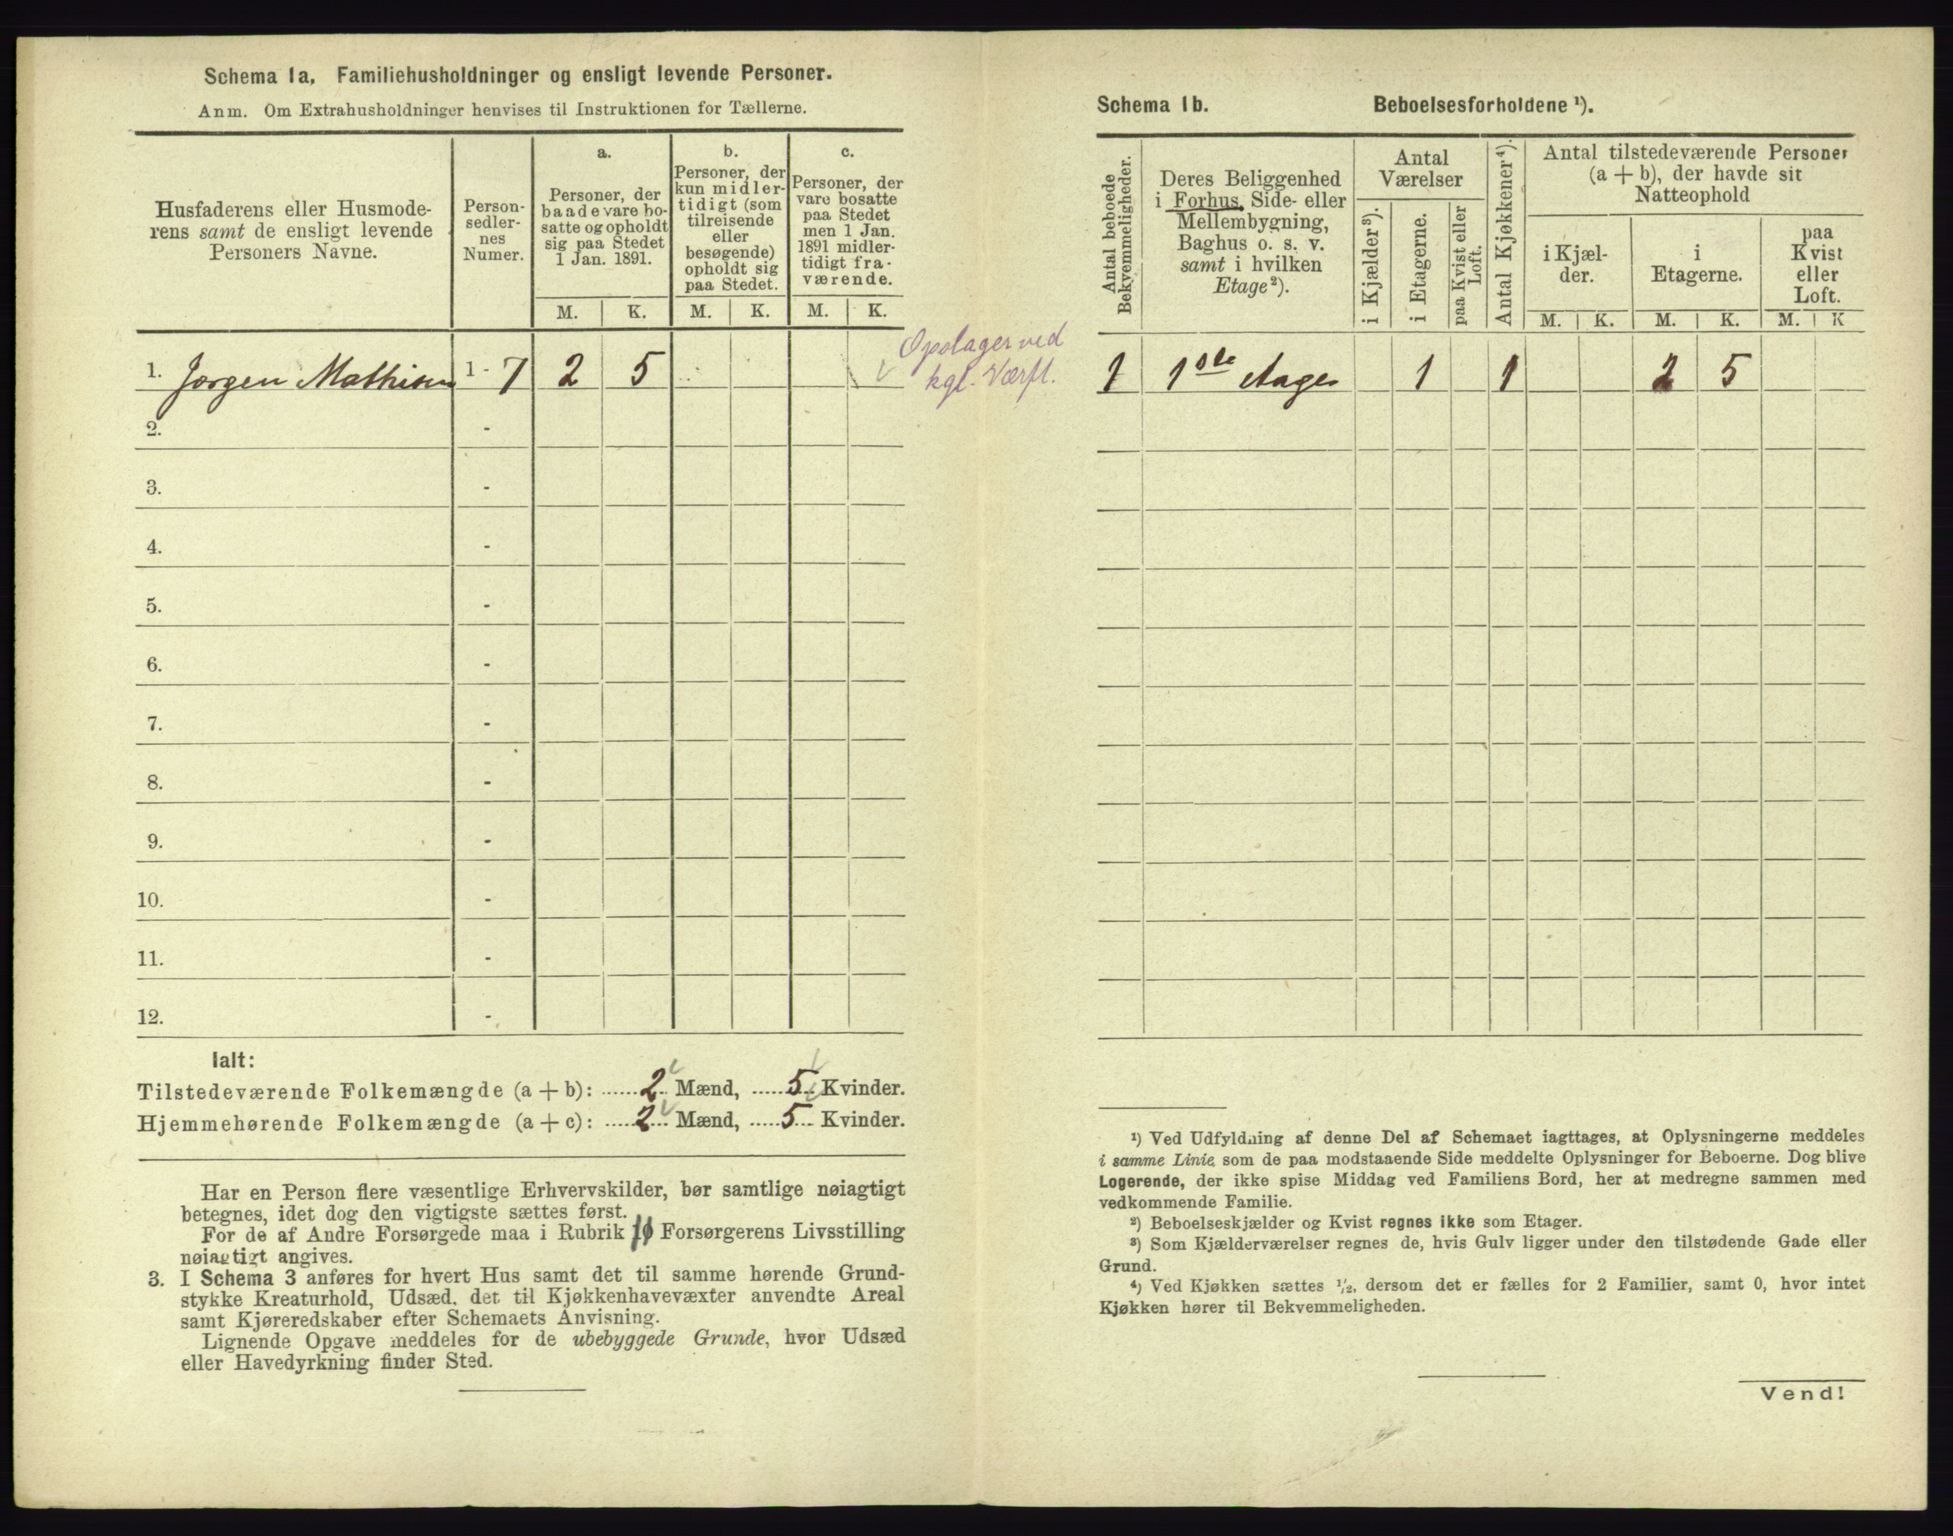 Schema 1a, Familiehusholdninger og ensligt levende Personer.
Anm. Om Extrahusholdninger henvises til Instruktionen for Tællerne.
Husfaderens eller Husmode-
rens samt de ensligt levende
Personers Navne.
Person-
sedler-
nes
Numer.
a.
Personer, der
baade vare bo-
satte og opholdt
sig paa Stedet
1 Jan. 1891.
b.
Personer, der
kun midler-
tidigt (som
tilreisende
eller
besøgende)
opholdt sig
paa Stedet.
c.
Personer, der
vare bosatte
paa Stedet
men 1 Jan.
1891 midler-
tidigt fra-
værende.
M. K. M. K. M. K.
1. Jørgen Mathisen 1 - 7 2 5
Opslager ved
kgl. Værft.
2. -
3. -
4. -
5. -
6. -
7. -
8. -
9. -
10. -
11. -
12. -
Ialt:
Tilstedeværende Folkemængde (a + b): ......2.. Mænd, .....5... Kvinder.
Hjemmehørende Folkemængde (a + c): .....2... Mænd, .....5... Kvinder.
Har en Person flere væsentlige Erhvervskilder, bør samtlige nøiagtigt
betegnes, idet dog den vigtigste sættes først.
For de af Andre Forsørgede maa i Rubrik 10 Forsørgerens Livsstilling
nøiagtigt angives.
3. I Schema 3 anføres for hvert Hus samt det til samme hørende Grund-
stykke Kreaturhold, Udsæd, det til Kjøkkenhavevæxter anvendte Areal
samt Kjøreredskaber efter Schemaets Anvisning.
Lignende Opgave meddeles for de ubebyggede Grunde, hvor Udsæd
eller Havedyrkning finder Sted.
Schema 1b. Beboelsesforholdene ¹).
Antal beboede
Bekvemmeligheder.
Deres Beliggenhed
i Forhus, Side- eller
Mellembygning,
Baghus o. s. v.
samt i hvilken
Etage²).
Antal
Værelser
i Kjælder³).
i Etagerne.
paa Kvist eller
Loft.
Antal Kjøkkener⁴).
Antal tilstedeværende Personer
(a + b), der havde sit
Natteophold
i Kjæl-
der.
i
Etagerne.
paa
Kvist
eller
Loft.
M. K. M. K. M. K
1 1ste Etage 1 1 2 5
¹) Ved Udfyldning af denne Del af Schemaet iagttages, at Oplysningerne meddeles
i samme Linie, som de paa modstaaende Side meddelte Oplysninger for Beboerne. Dog blive
Logerende, der ikke spise Middag ved Familiens Bord, her at medregne sammen med
vedkommende Familie.
²) Beboelseskjælder og Kvist regnes ikke som Etager.
³) Som Kjælderværelser regnes de, hvis Gulv ligger under den tilstødende Gade eller
Grund.
⁴) Ved Kjøkken sættes ½, dersom det er fælles for 2 Familier, samt 0, hvor intet
Kjøkken hører til Bekvemmeligheden.
Vend!